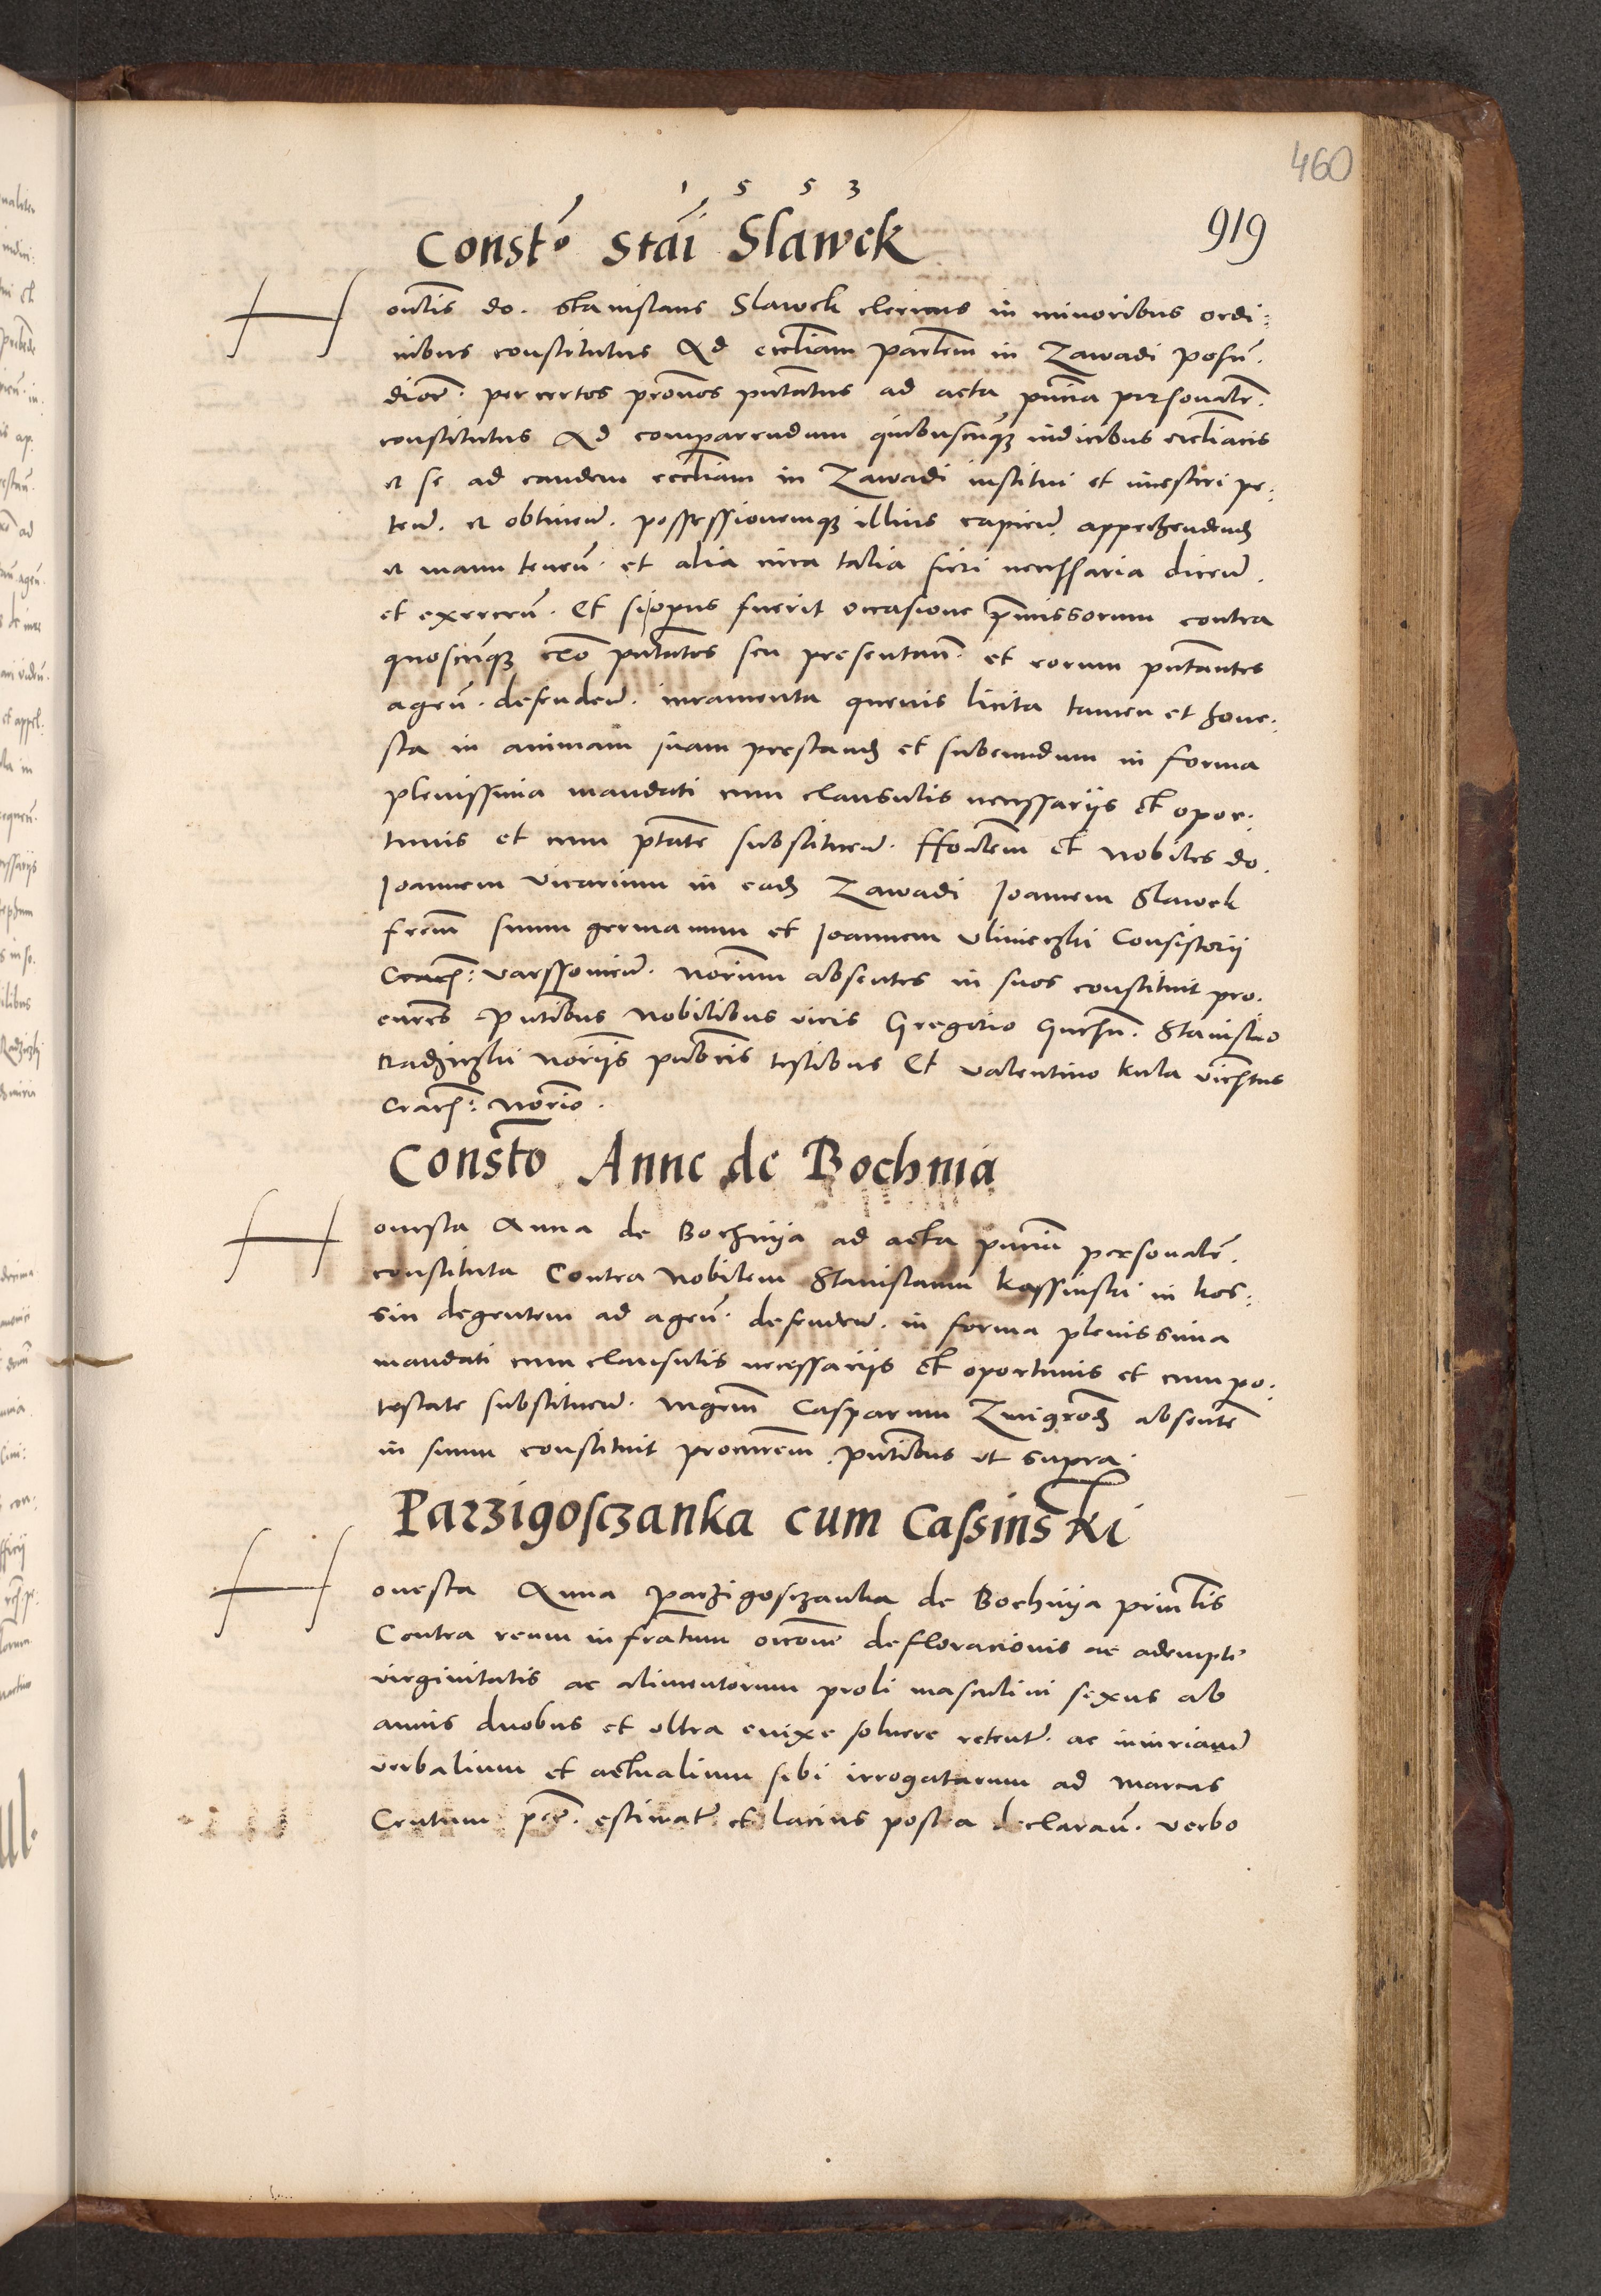 460
1 5 5 3
919
Constõ Stãi Slawek
Honēlis do. Stanislaus Slawek clericus in minoribus ordi:
nibus constitutus Ad eccliam parlem in Zawadi posñ.
dioc̃. per certos pronos pntatus ad acta pñcia personalr̃.
constitutus Ad comparendum quibuscũqʒ iudicibus eccliacis
et se ad eandem eccliam in Zawadi institui et inuestiri pe:
teñ. et obtineñ. possessionemqʒ illius capieñ. apprehendenđ
et manu teneñ. et alia circa talia fieri necessaria diceñ.
et exerceñ. Et si opus fuerit occasione p̃missorum contra
quoscũqʒ pntatos seu presentañ. et eorum pntantes
ageñ. defendeñ. iuramenta queuis licita tamen et hone:
sta in animam suam prestanđ et subeundum in forma
plenissima mandati cum clausulis necessarijs et opor:
tunis et cum ptate substitueñ. Hoñlem et Nobiles do.
Joannem vicarium in eađ Zawadi Joannem Slawek
frem̃ suum germanum et Joannem Vlinieczki Consistorij
Cracʒ: varssouieñ. Norium absentes in suos constituit pro.
curẽs Pntibus Nobilibus viris Gregorio Stanislao
Radziczki Norijs pub̃cis testibus Et Valentino Kula
Cracʒ: Norio.
Constõ Anne de Bochnia
Honesta Anna de Bochnija ad acta pñcia personalr̃.
constituta Contra Nobilem Stanislaum Kossinski in Kos:
sin degentem ad ageñ. defendeñ. in forma plenissima
mandati cum clausulis necessarijs et oportunis et cum po:
testate substitueñ. Mgrm̃ Casparum Zmigrođ absentẽ
in suum constituit procurem̃. Pntibus ut supra.
Parzigosczanka cum Cassinski
Honesta Anna Parzigosczanka de Bochnija prinlis
Contra reum infratum occõne defloracionis ac adempte
virginitatis ac alimentorum proli masculini sexus ab
annis duobus et vltra enixe soluere retent̃. ac iniuriarũ
verbalium et actualium sibi irrogatarum ad marcas
Centum pec̃. estimat̃ et lacius postea declarañ. verbo